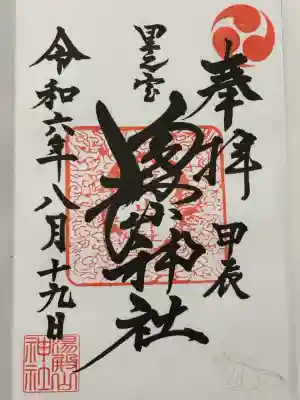 奉拝
甲辰
里之宮
神社
令和六年八月十九日
湯殿山
神社